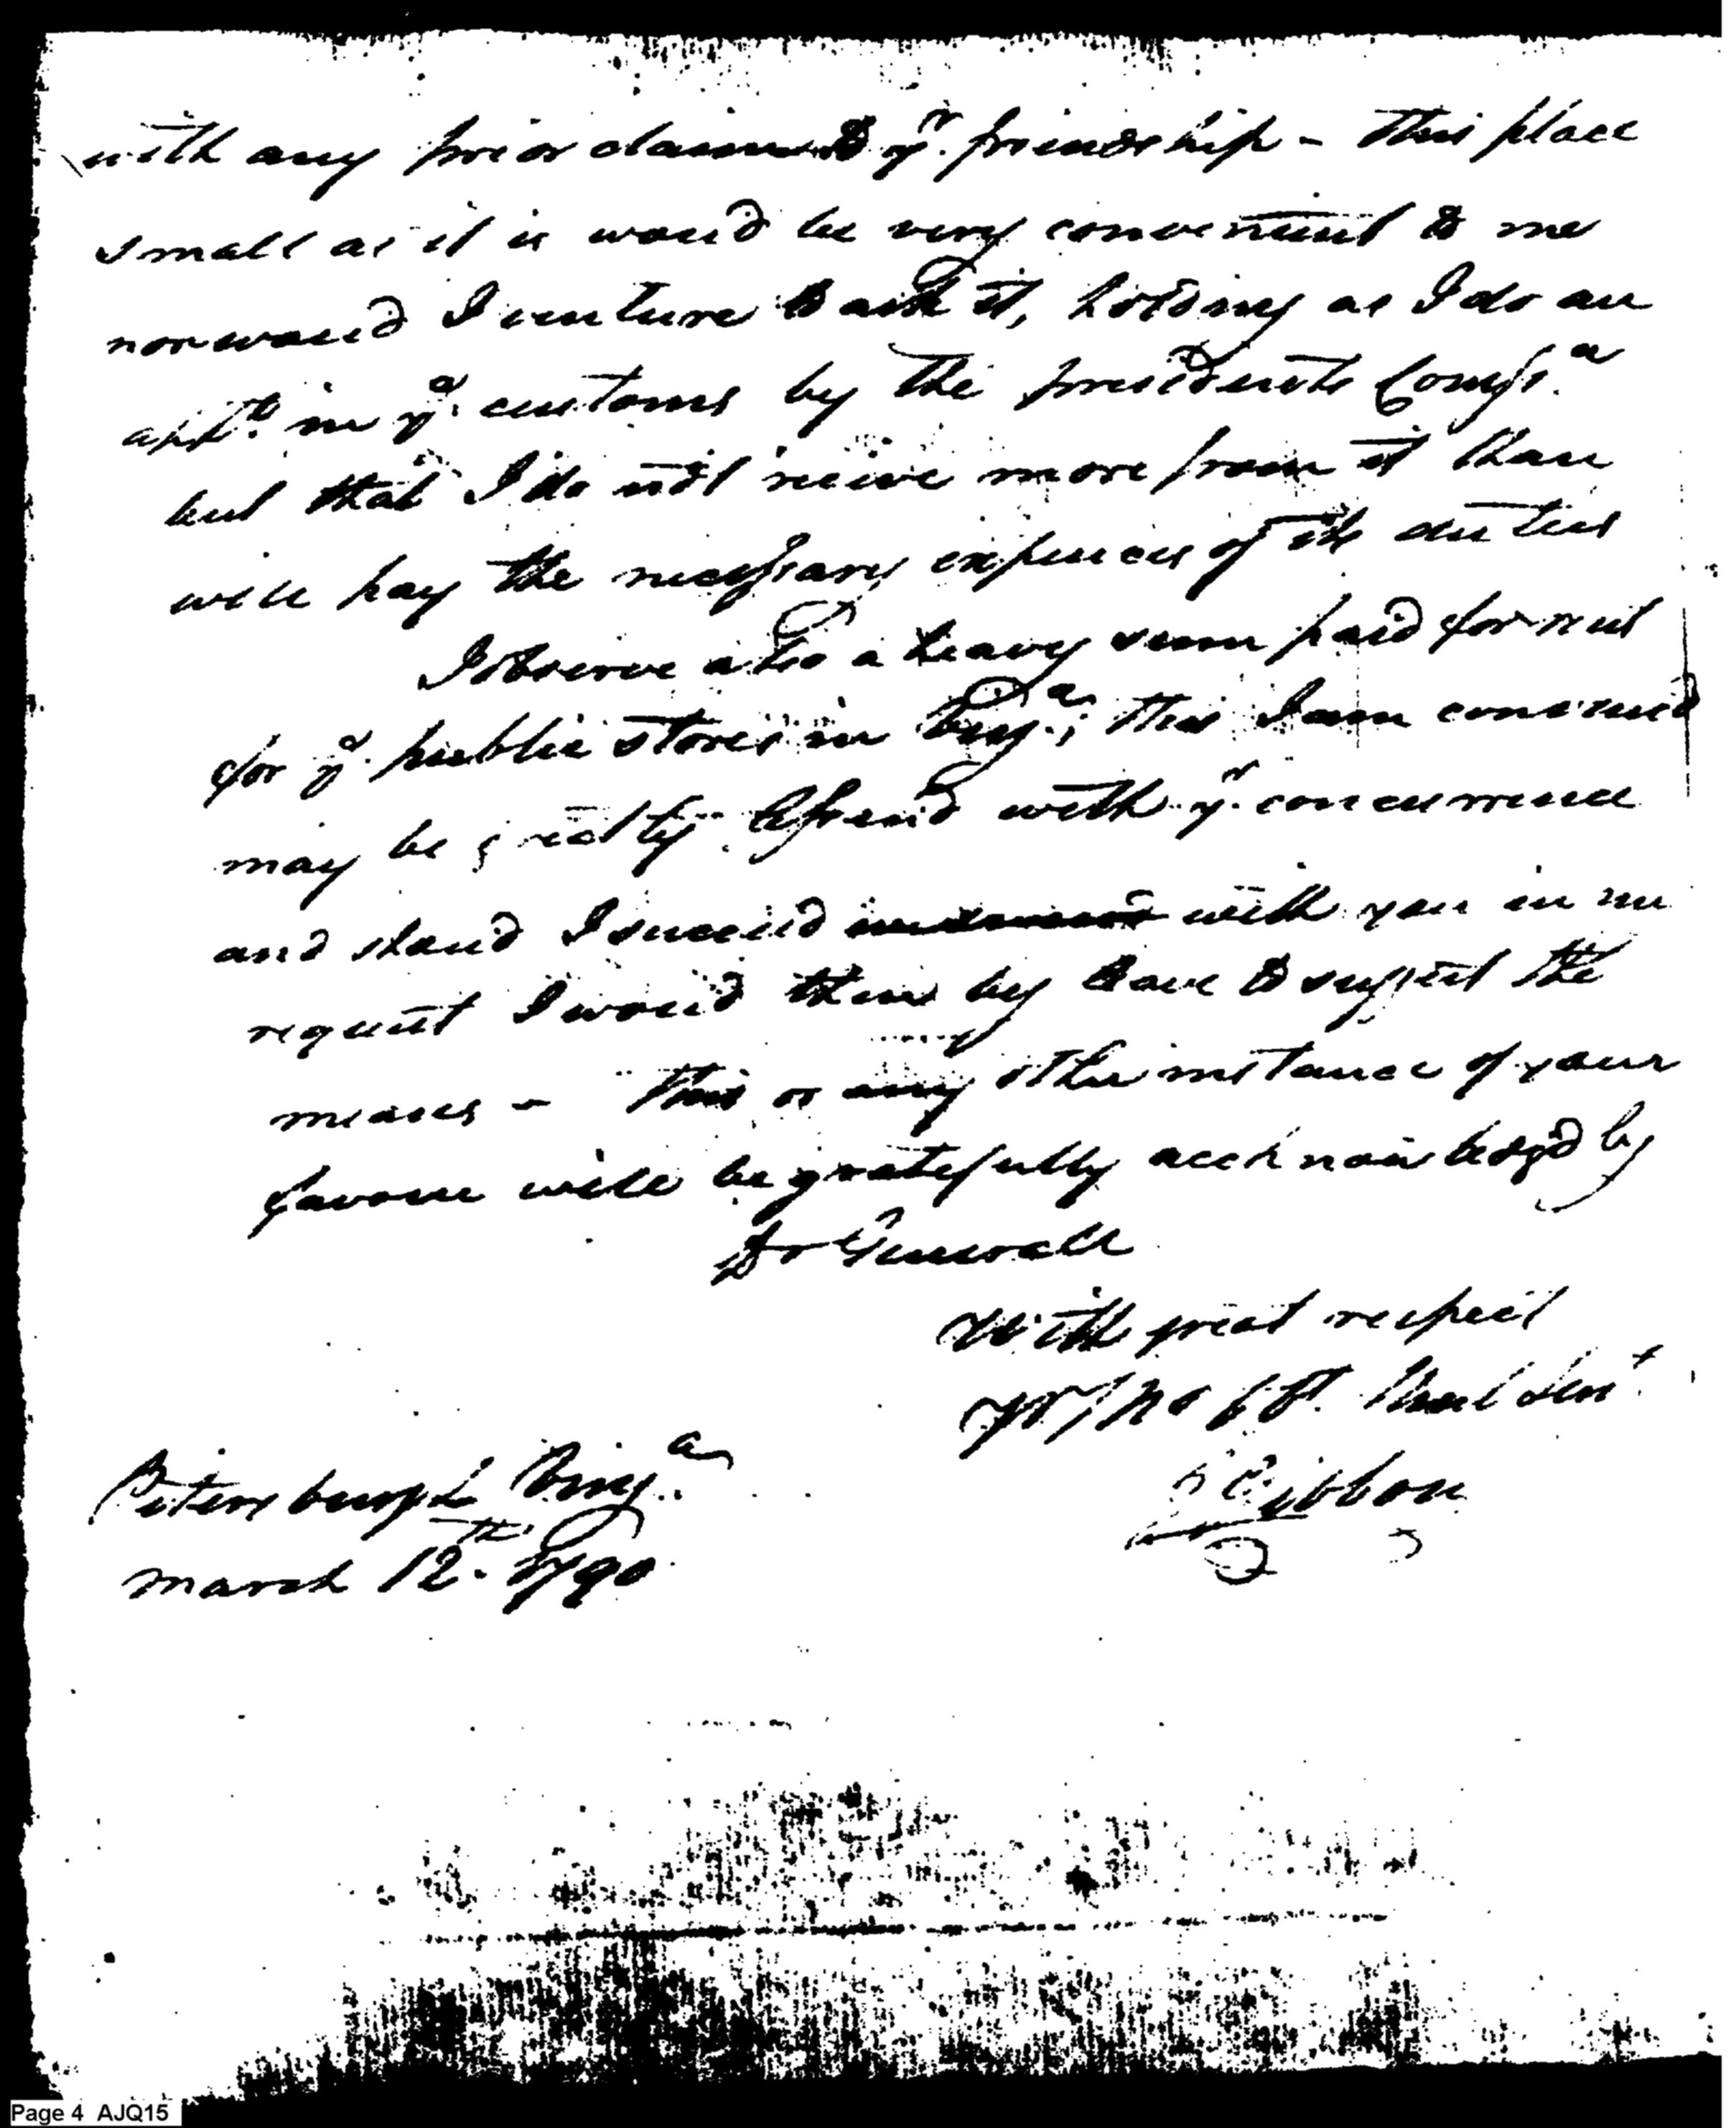 with any prior claims to yr. friendship - This place
small as it is wou'd be very convenient to me
nor wou'd I venture to ask it, holding as I do an
aptt. in ye. customs by the presidents Comssn.
but that I do not receive more from it than
will pay the necessary expences of its duties
I observe also a heavy sum paid for rent
for ye. public stores in Virga.; this I am convinced
may be greatly lessen'd with yr. concurrence
and shou'd I succeed with you in my
request I wou'd then beg leave to suggest the
means - This or any other instance of your
favour will be gratefully acknowledg'd by
Dr Generall
With great respect
yr Mo Obt. Huml Servt.
J Gibbon
Petersburgh Virga.
March 12th. 1790
Page 4 AJQ15